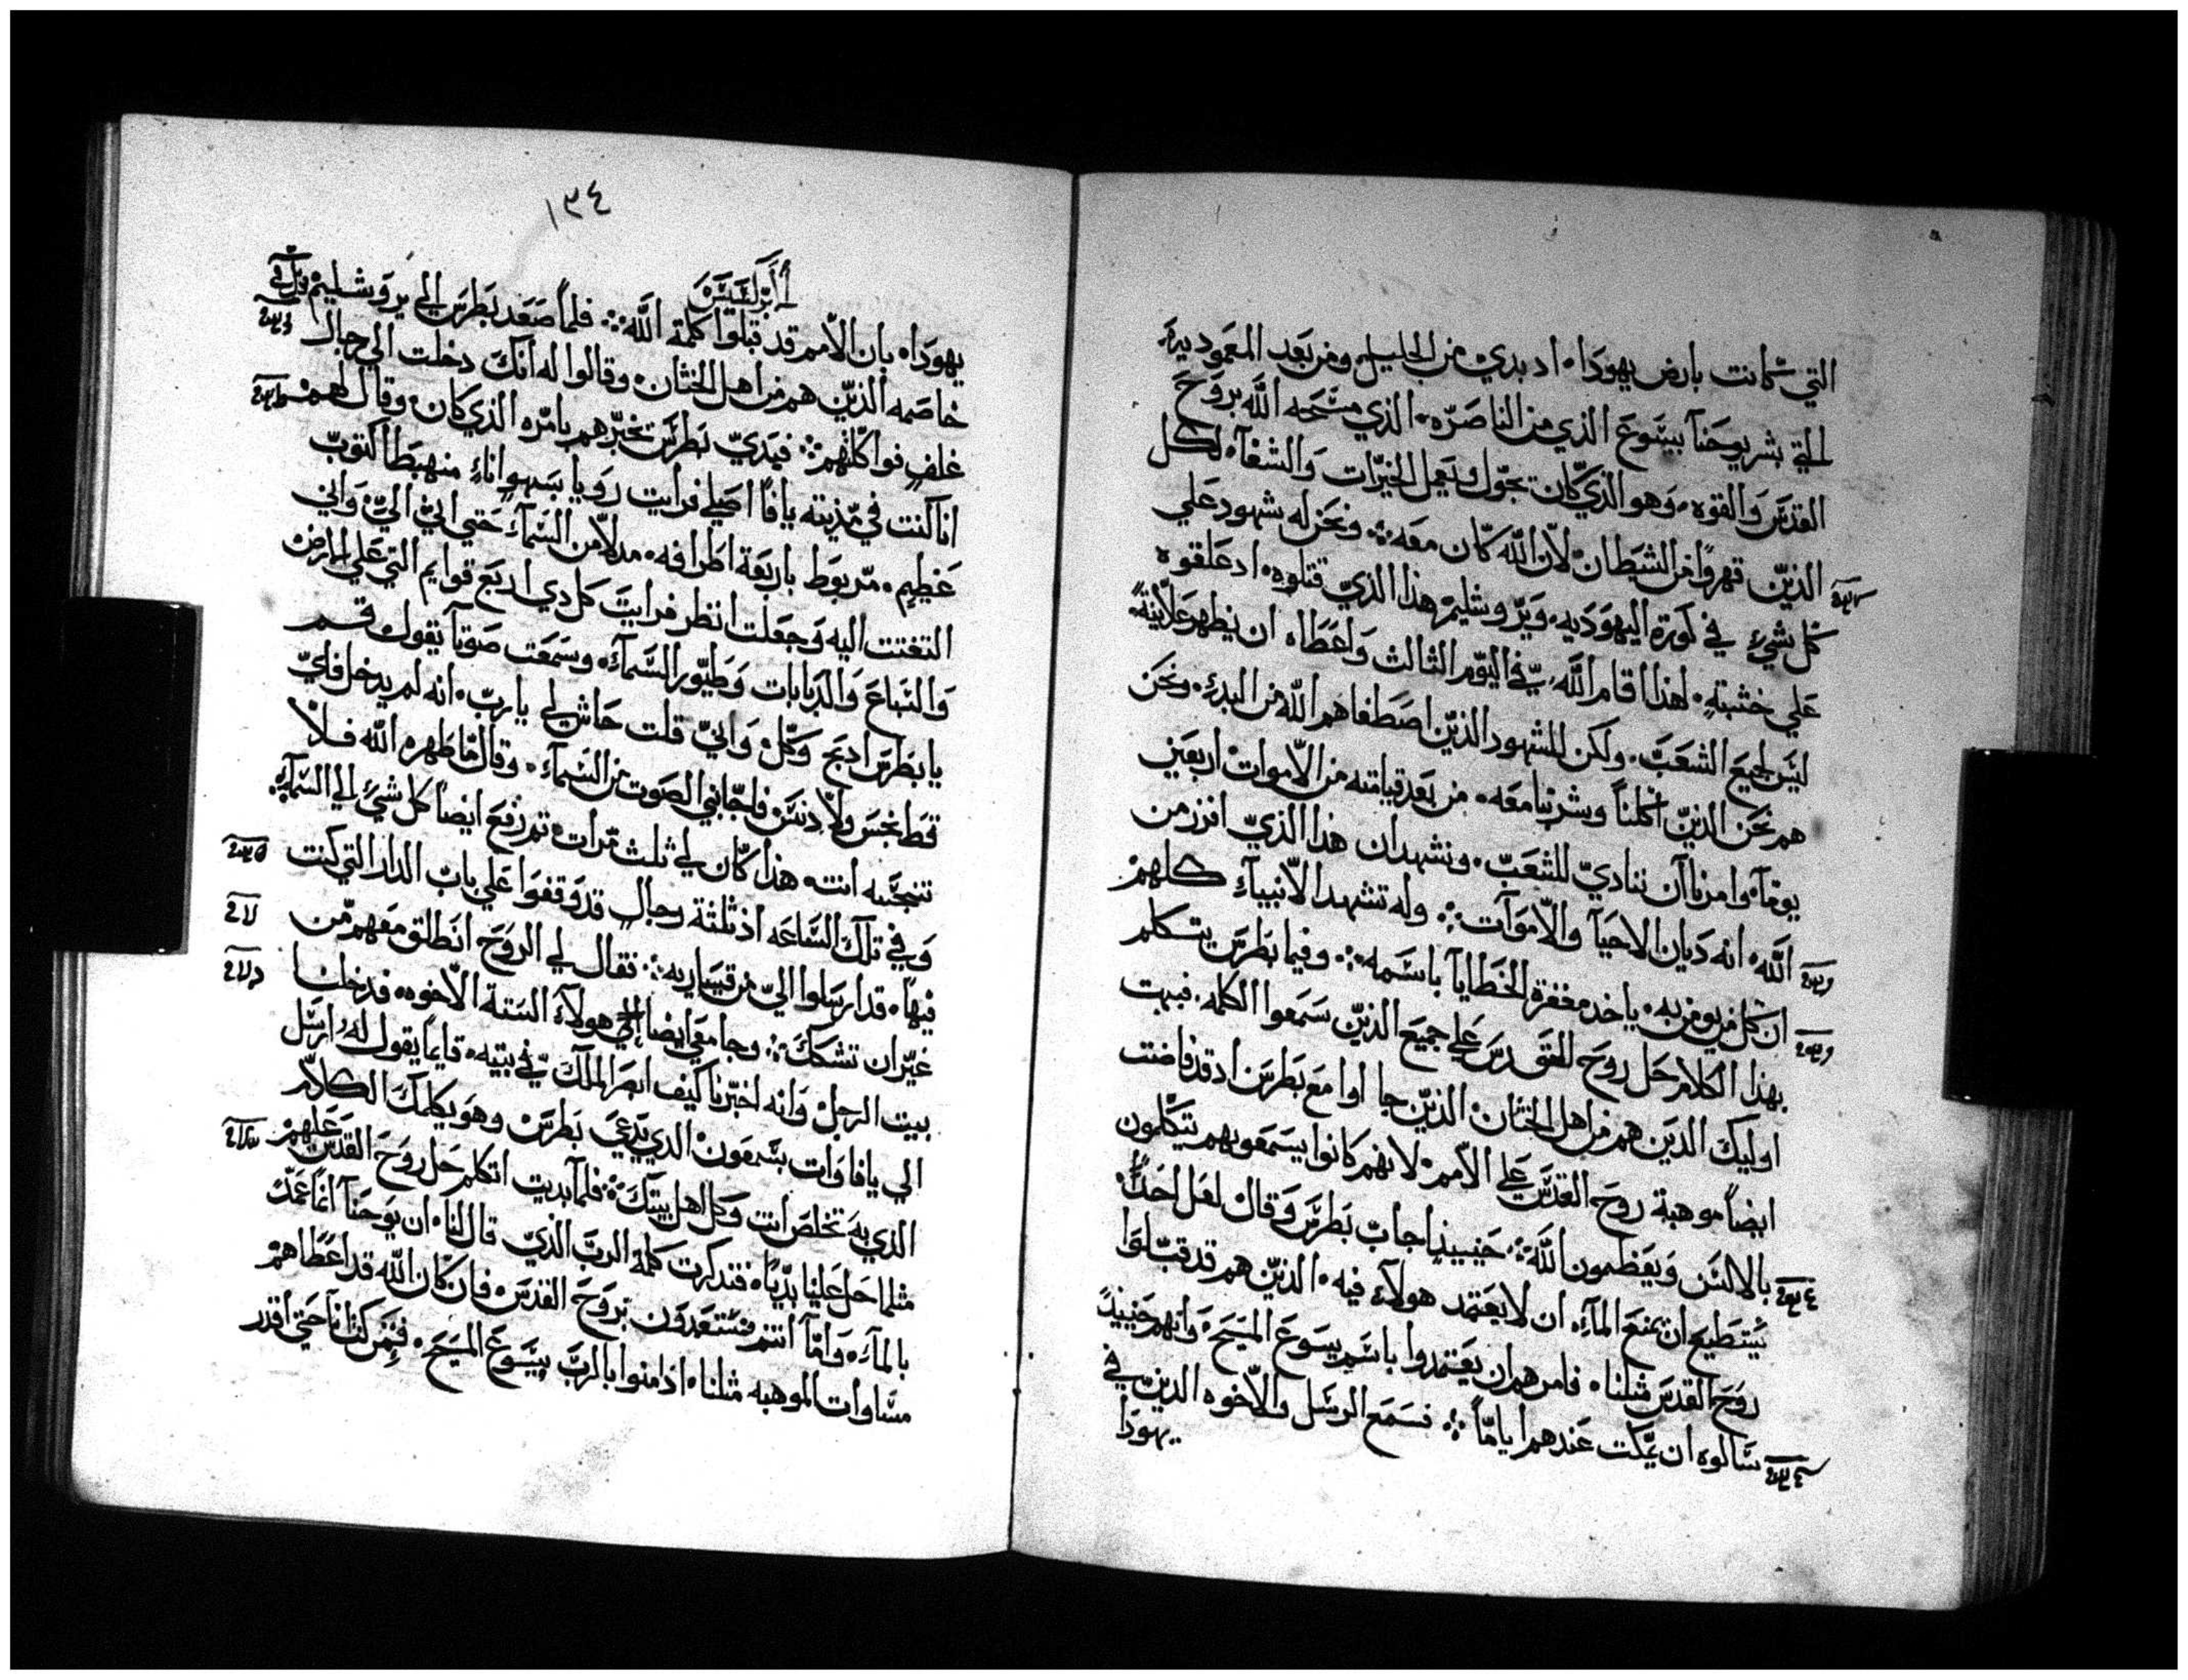 التي كانت بارض يهودا اد بدي من الجليل ومن بعد المعموديه
التي بشر يوحنا بيسوع الذي من الناصره الذي مسحه الله بروح
القدس والقوه وهو الذي كان يجول ويعمل الخيرات والشفآء لكل
الذين قهروا من الشيطان لان الله كان معه ونحن له شهود علي
كل شيء في كورة اليهوديه ويروشليم هذا الذي قتلوه اد علقوه
علي خشبة لهذا اقام الله في اليوم الثالث واعطاه ان يظهر علانية
ليس لجميع الشعب ولكن للشهود الذين اصطفاهم الله من البدء ونحن
هم نحن الذين اكلنا وشربنا معه من بعد قيامته من الاموات اربعين
يوما وامرنا ان ننادي للشعب ونشهد ان هذا الذي افرز من
الله انه ديان الاحيا والاموات وله تشهد الانبياء كلهم
ان كل من يومن به ياخد مغفرة الخطايا باسمه وفيما بطرس يتكلم
بهذا الكلام حل روح القدس علي جميع الذين سمعوا الكلمه فبهت
اوليك الدين هم من اهل الختان الذين جا اوا مع بطرس اد قد فاضت
ايضا موهبة روح القدس علي الامم لانهم كانوا يسمعونهم يتكلمون
بالالسن ويعظمون الله حينيذ اجاب بطرس وقال لعل احد
يستطيع ان يمنع المآء ان لا يعتمد هولآء فيه الذين هم قد قبلوا
روح القدس مثلنا فامرهم ان يعتمدوا باسم يسوع المسيح وانهم حينيذ
سالوه ان يمكت عندهم اياما فسمع الرسل والاخوه الذين في
يهودا
١٣٤
ابركسيس
يهودا بان الامم قد قبلوا كلمة الله فلما صعد بطرس الي يروشليم
خاصمه الذين هم من اهل الختان وقالوا له انك دخلت الي رجال
غلف فواكلتهم فبدي بطرس يخبرهم بامره الذي كان وقال لهم
انا كنت في مدينة يافا اصلي فرايت رويا بسهو اناء منهبطا كتوب
عظيم مربوط باربعة اطرافه مدلا من السمآء حتي اتي الي واني
التفتت اليه وجعلت انظر فرايت كل دي اربع قوايم التي علي الارض
والسباع والدبابات وطيور السمآء وسمعت صوتا يقول قم
يا بطرس ادبح وكل واني قلت حاش لي يارب انه لم يدخل فاي
قط نجس ولا دنس فاجابني الصوت من السمآء وقال ما طهره الله فلا
تنجسه انت هذا كان لي ثلث مرات تم رفع ايضا كل شيء الي السمآء
وفي تلك الساعه اذ ثلثة رجال قد وقفوا علي باب الدار التي كنت
فيها قد ارسلوا الي من قيساريه فقال لي الروح انطلق معهم من
غير ان تشك وجا معي ايضا هولآء الستة الاخوه فدخلنا
بيت الرجل وانه اخبرنا كيف ابصر الملك في بيته قايما يقول له ارسل
الي يافا وات بسمعون الدي يدعي بطرس وهو يكلمك الكلام
الذي به تخلص انت وكل اهل بيتك فلما بديت اتكلم حل روح القدس عليهم
مثلما حل علينا بديا فتدكرت كلمة الرب الذي قال لنا ان يوحنا انما عمد
بالمآء واما انتم فستعمدون بروح القدس فان كان الله قد اعطاهم
مساوات الموهبه مثلنا اذ امنوا بالرب يسوع المسيح فمن كنت انا حتي اقدر